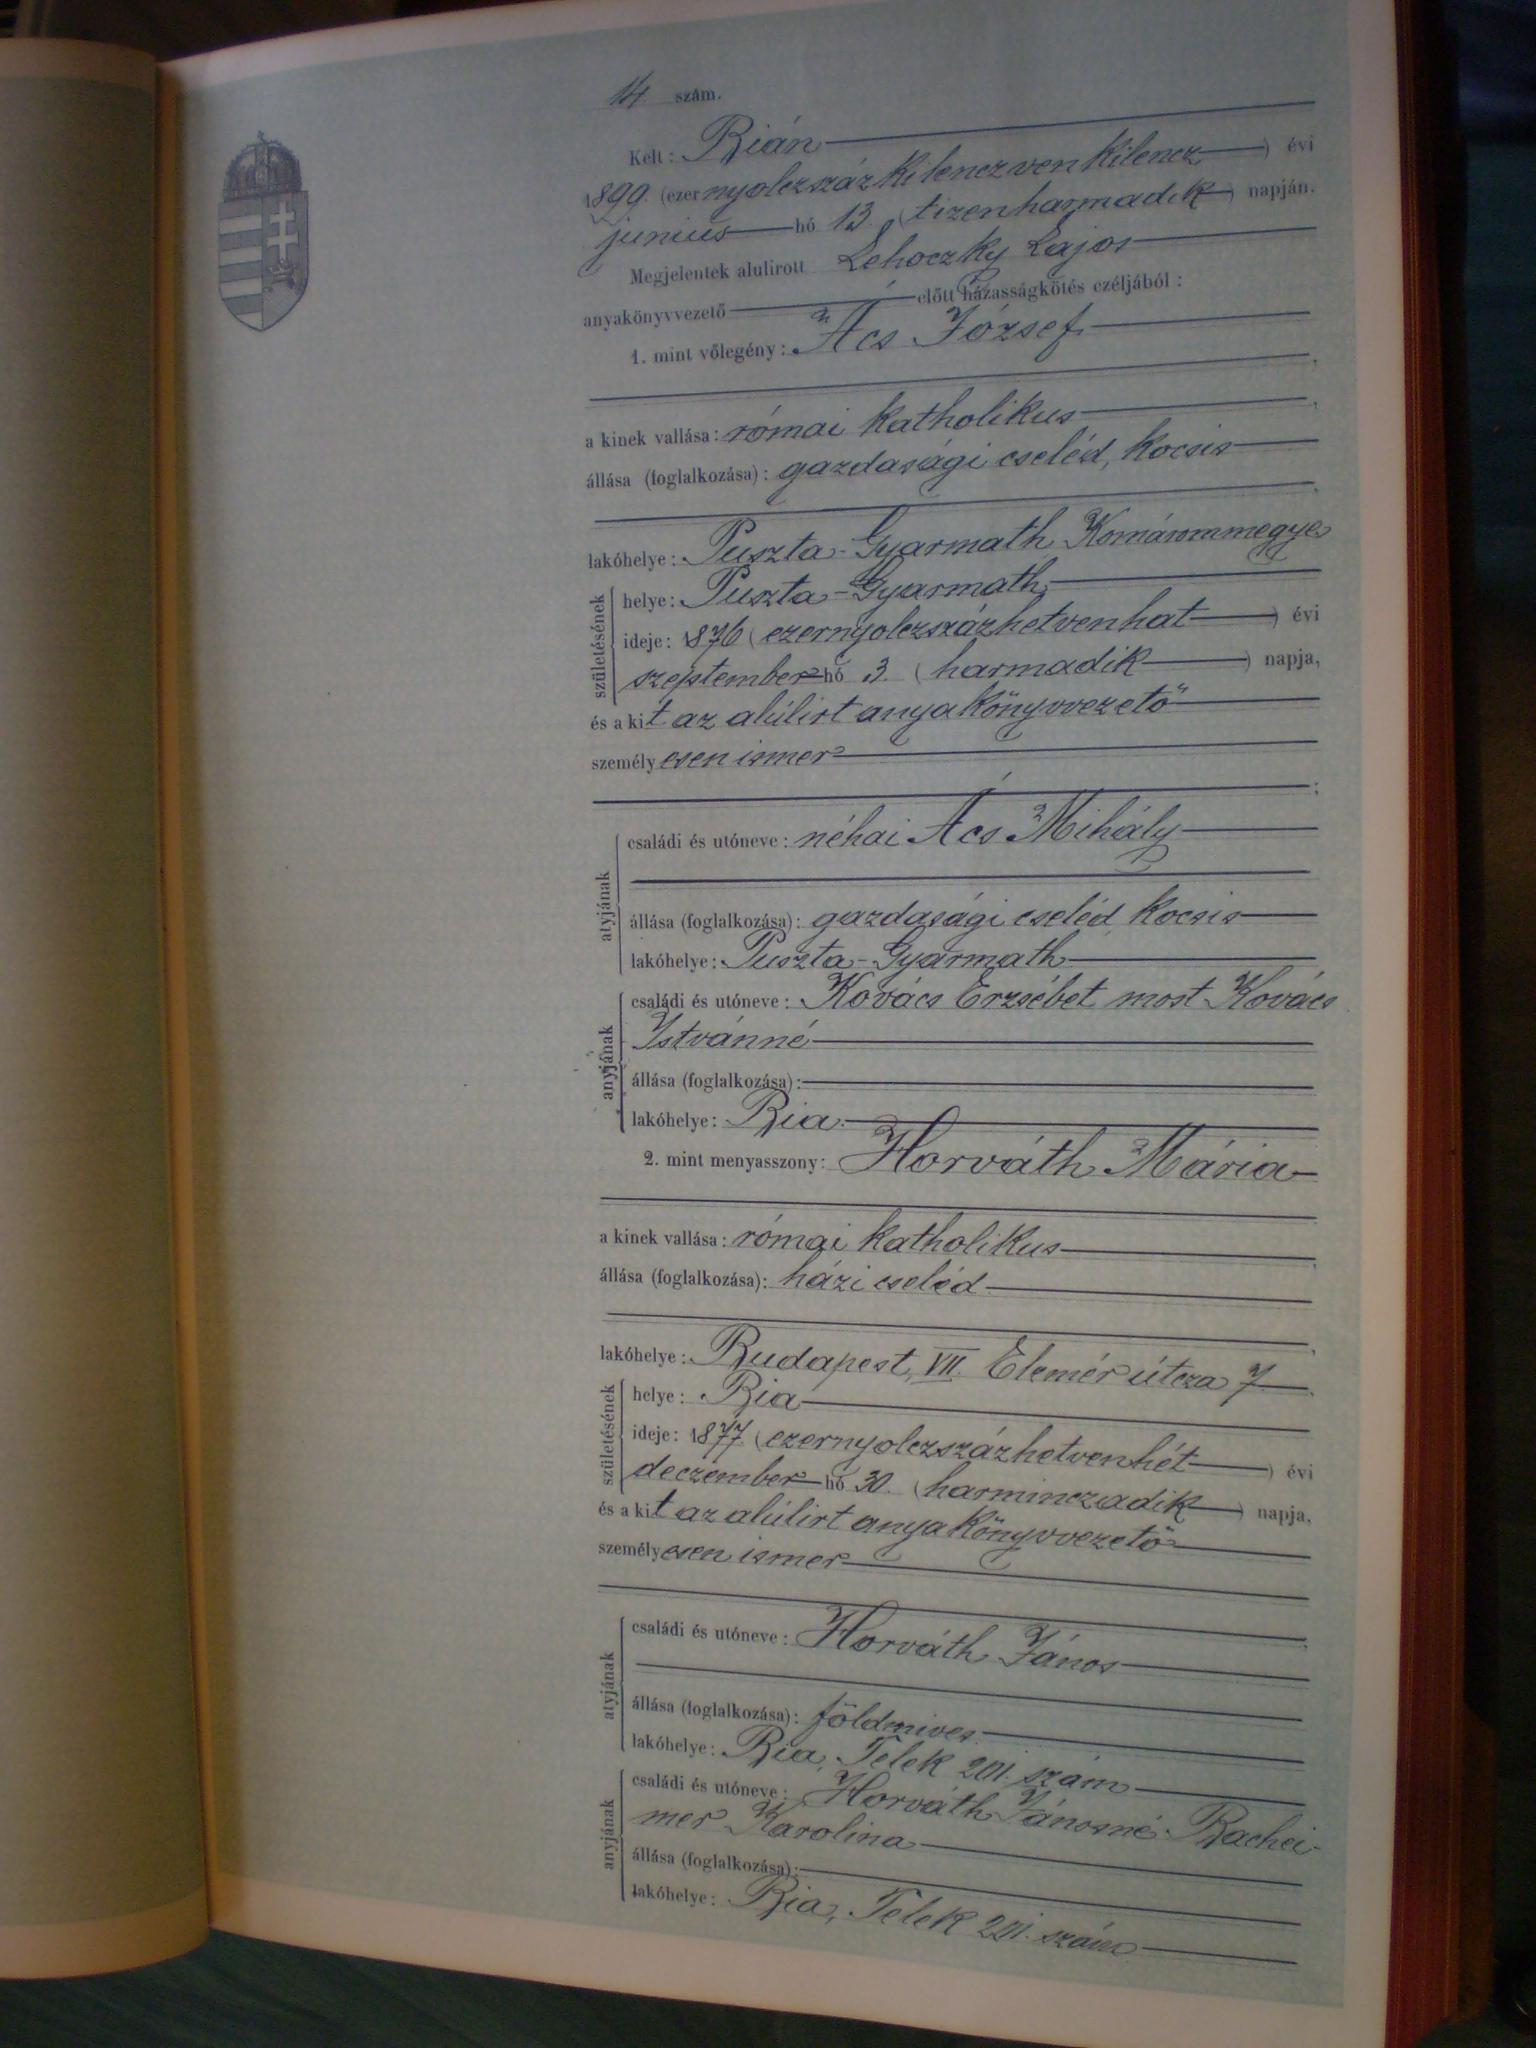 14 szám.
Kelt: Bián
1899. (ezernyolczszázkilenczvenkilencz) évi
junius hó 13. (tizenharmadik) napján.
Megjelentek alulirott Lehoczky Lajos
anyakönyvvezető előtt házasságkötés czéljából:
1. mint vőlegény: Ács József
a kinek vallása: római katholikus
állása (foglalkozása): gazdasági cseléd, kocsis
lakóhelye: Puszta-Gyarmath Komárommegye
születésének
helye: Puszta-Gyarmath,
ideje: 1876 (ezernyolczszázhetvenhat) évi
szeptember hó 3. (harmadik) napja,
és a kit az alúlirt anyakönyvvezető
személyesen ismer
;
atyjának
családi és utóneve: néhai Ács Mihály
állása (foglalkozása): gazdasági cseléd kocsis
lakóhelye: Puszta-Gyarmath
anyjának
családi és utóneve: Kovács Erzsébet most Kovács
Istvánné
állása (foglalkozása):
lakóhelye: Bia
2. mint menyasszony: Horváth Mária
a kinek vallása: római katholikus
állása (foglalkozása): házi cseléd
lakóhelye: Budapest, VII. Elemér útcza 7
születésének
helye: Bia
ideje: 1877 (ezernyolczszázhetvenhét) évi
deczember hó 30. (harminczadik) napja,
és a kit az alúlirt anyakönyvvezető
személyesen ismer
atyjának
családi és utóneve: Horváth János
állása (foglalkozása): földmives
lakóhelye: Bia, Telek 201. szám
anyjának
családi és utóneve: Horváth Jánosné Bachei-
mer Karolina
állása (foglalkozása):
lakóhelye: Bia, Telek 201. szám